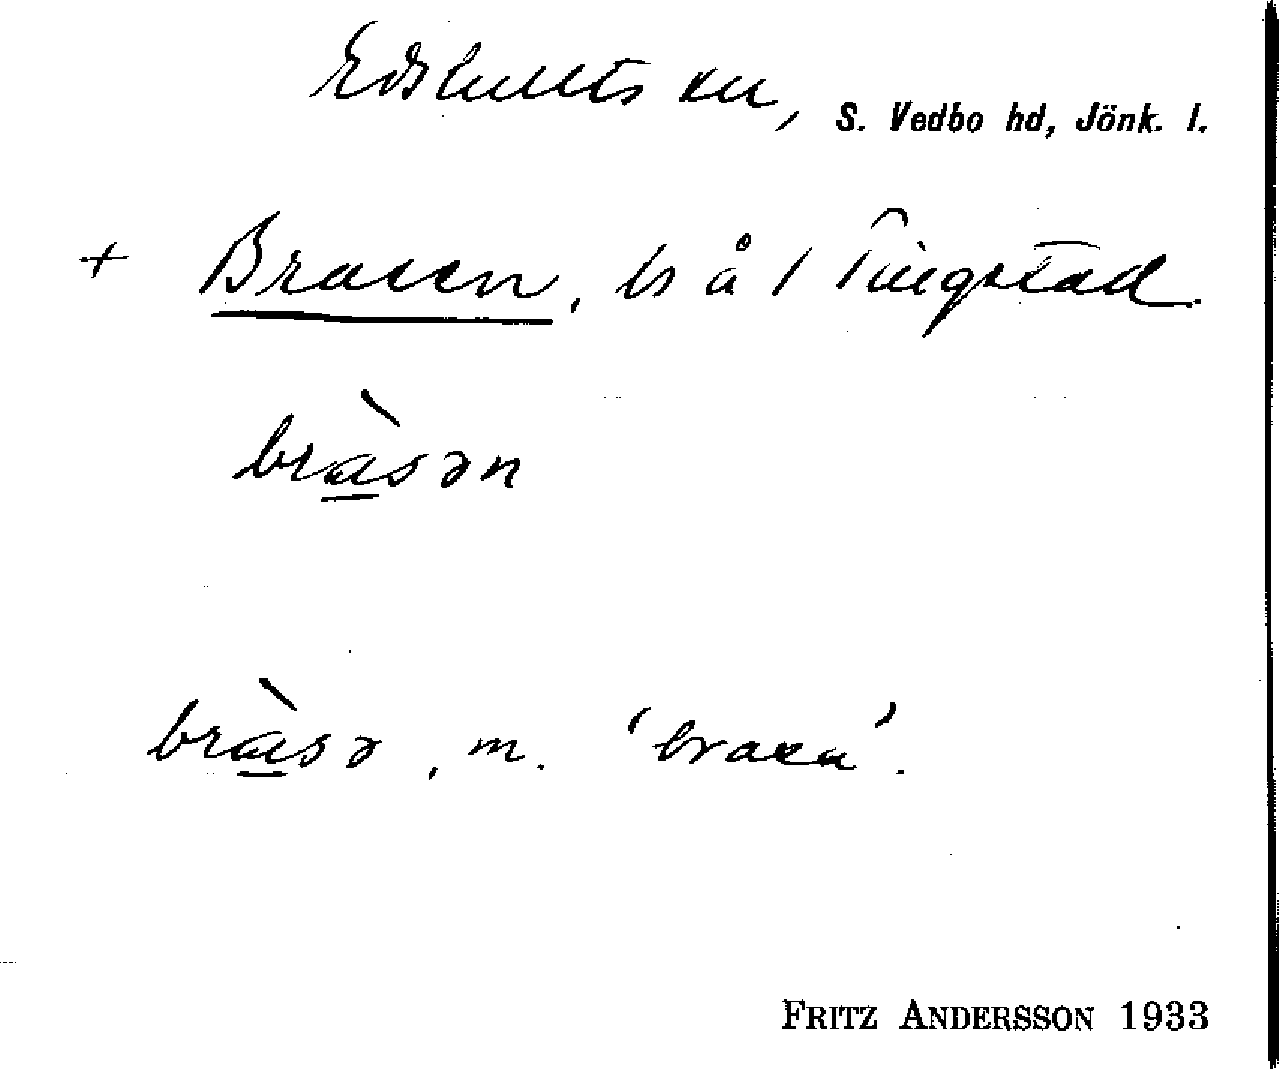 Edshults sn, S. Vedbo hd, Jönk. l.
+ Brasen, ls å 1 Tingstad.
bràsən
bràsə, m. 'brasa'.
FRITZ ANDERSSON 1933